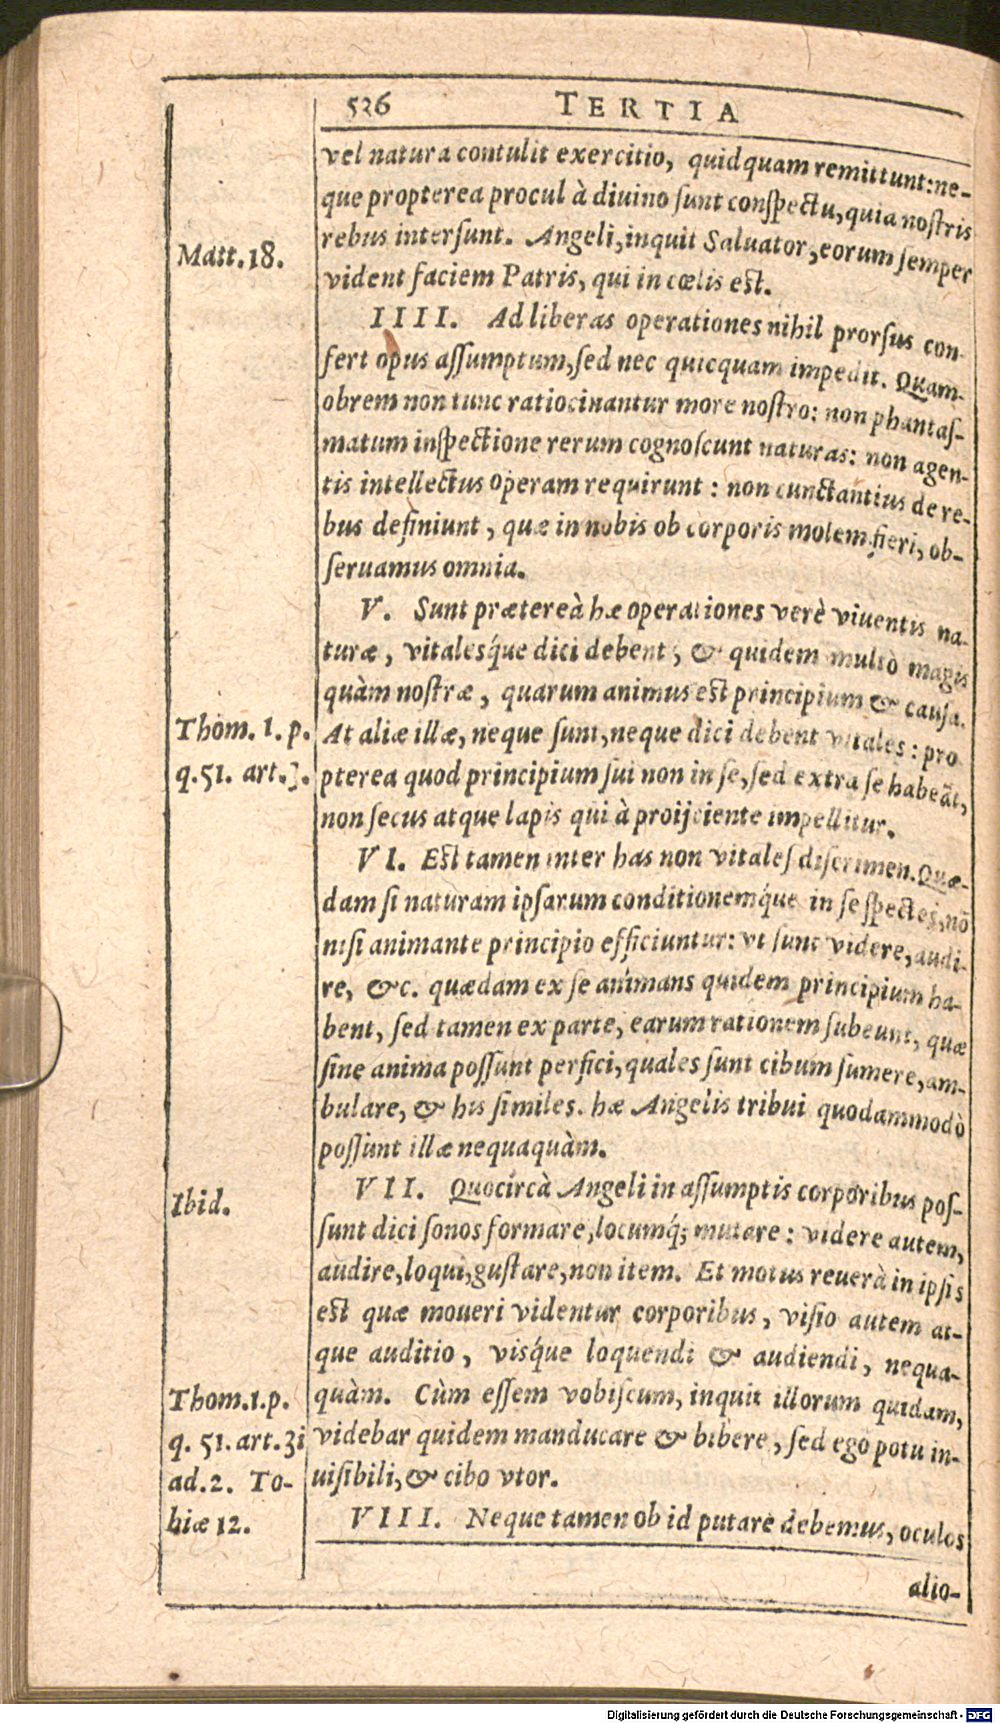 526 TERTIA
vel natura contulit exercitio, quidquam remittunt: ne-
que propterea procul à diuino ſunt conſpectu, quia noſtris
rebus interſunt. Angeli, inquit Saluator, eorum ſemper
Matt. 18.
vident faciem Patris, qui in cœlis eſt.
IIII. Ad liberas operationes nihil prorſus con-
fert opus aſſumptum, ſed nec quicquam impedit. Quam-
obrem non tunc ratiocinantur more noſtro: non phantaſ-
matum inſpectione rerum cognoſcunt naturas: non agen-
tis intellectus operam requirunt: non cunctantius de re-
bus definiunt, quæ in nobis ob corporis molem fieri, ob-
ſeruamus omnia.
V. Sunt prætereà hæ operationes verè viuentis na-
turæ, vitalesq́ue dici debent; & quidem multò magis
quàm noſtræ, quarum animus eſt principium & cauſa.
Thom. 1. p.
q. 51. art. 3.
At aliæ illæ, neque ſunt, neque dici debent vitales: pro
pterea quod principium ſui non in ſe, ſed extra ſe habeāt,
non ſecus atque lapis qui à proijciente impellitur.
VI. Eſt tamen inter has non vitales diſcrimen. Quæ-
dam ſi naturam ipſarum conditionemq́ue in ſe ſpectes, nō
niſi animante principio efficiuntur: vt ſunt videre, audi-
re, &c. quædam ex ſe animans quidem principium ha-
bent, ſed tamen ex parte, earum rationem ſubeunt, quæ
ſine anima poſſunt perfici, quales ſunt cibum ſumere, am-
bulare, & his ſimiles. hæ Angelis tribui quodammodò
poſſunt illæ nequaquàm.
Ibid.
VII. Quocircà Angeli in aſſumptis corporibus poſ-
ſunt dici ſonos formare, locumq́; mutare: videre autem,
audire, loqui, guſtare, non item. Et motus reuerà in ipſis
eſt quæ moueri videntur corporibus, viſio autem at-
que auditio, visq́ue loquendi & audiendi, nequa-
Thom. 1. p.
q. 51. art. 3i
ad. 2. To-
biæ 12.
quàm. Cùm eſſem vobiſcum, inquit illorum quidam,
videbar quidem manducare & bibere, ſed ego potu in-
uiſibili, & cibo vtor.
VIII. Neque tamen ob id putare debemus, oculos
alio-
Digitalisierung gefördert durch die Deutsche Forschungsgemeinschaft - DFG